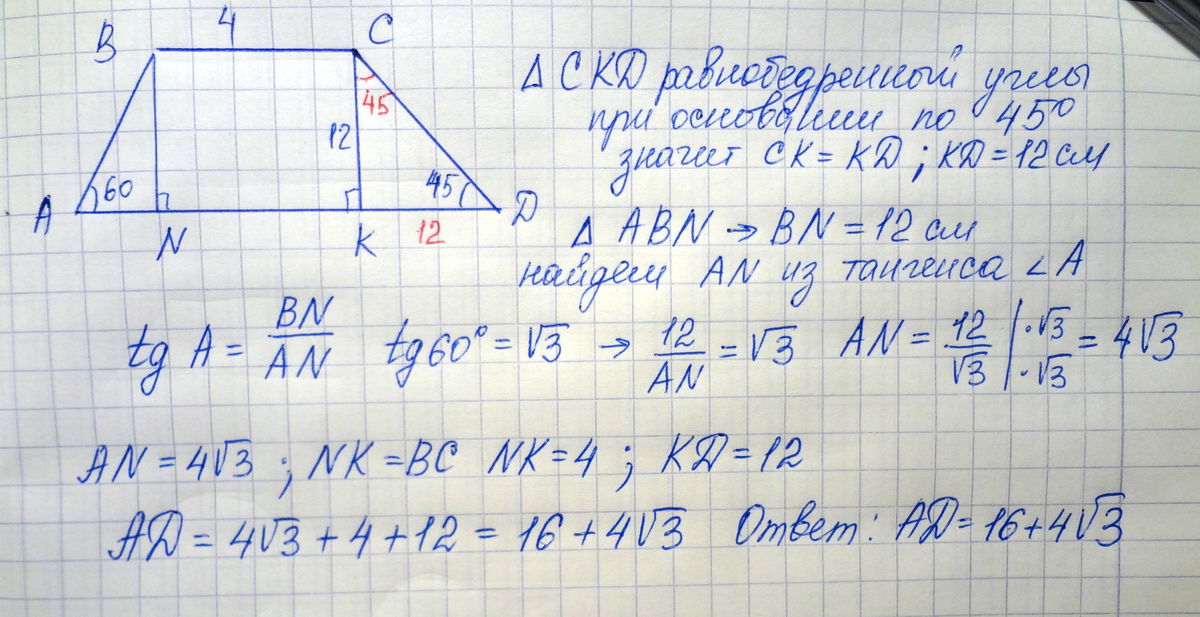 4
B
C
45
12
60
45
A
N
K
12
D
Δ CKD равнобедренный углы
при основании по 45°
значит CK = KD ; KD = 12 см
Δ ABN → BN = 12 см
найдем AN из тангенса ∠A
tg A = BN/AN tg 60° = √3 → 12/AN = √3 AN = 12/√3 | ·√3/·√3 = 4√3
AN = 4√3 ; NK = BC NK = 4 ; KD = 12
AD = 4√3 + 4 + 12 = 16 + 4√3 Ответ: AD = 16 + 4√3